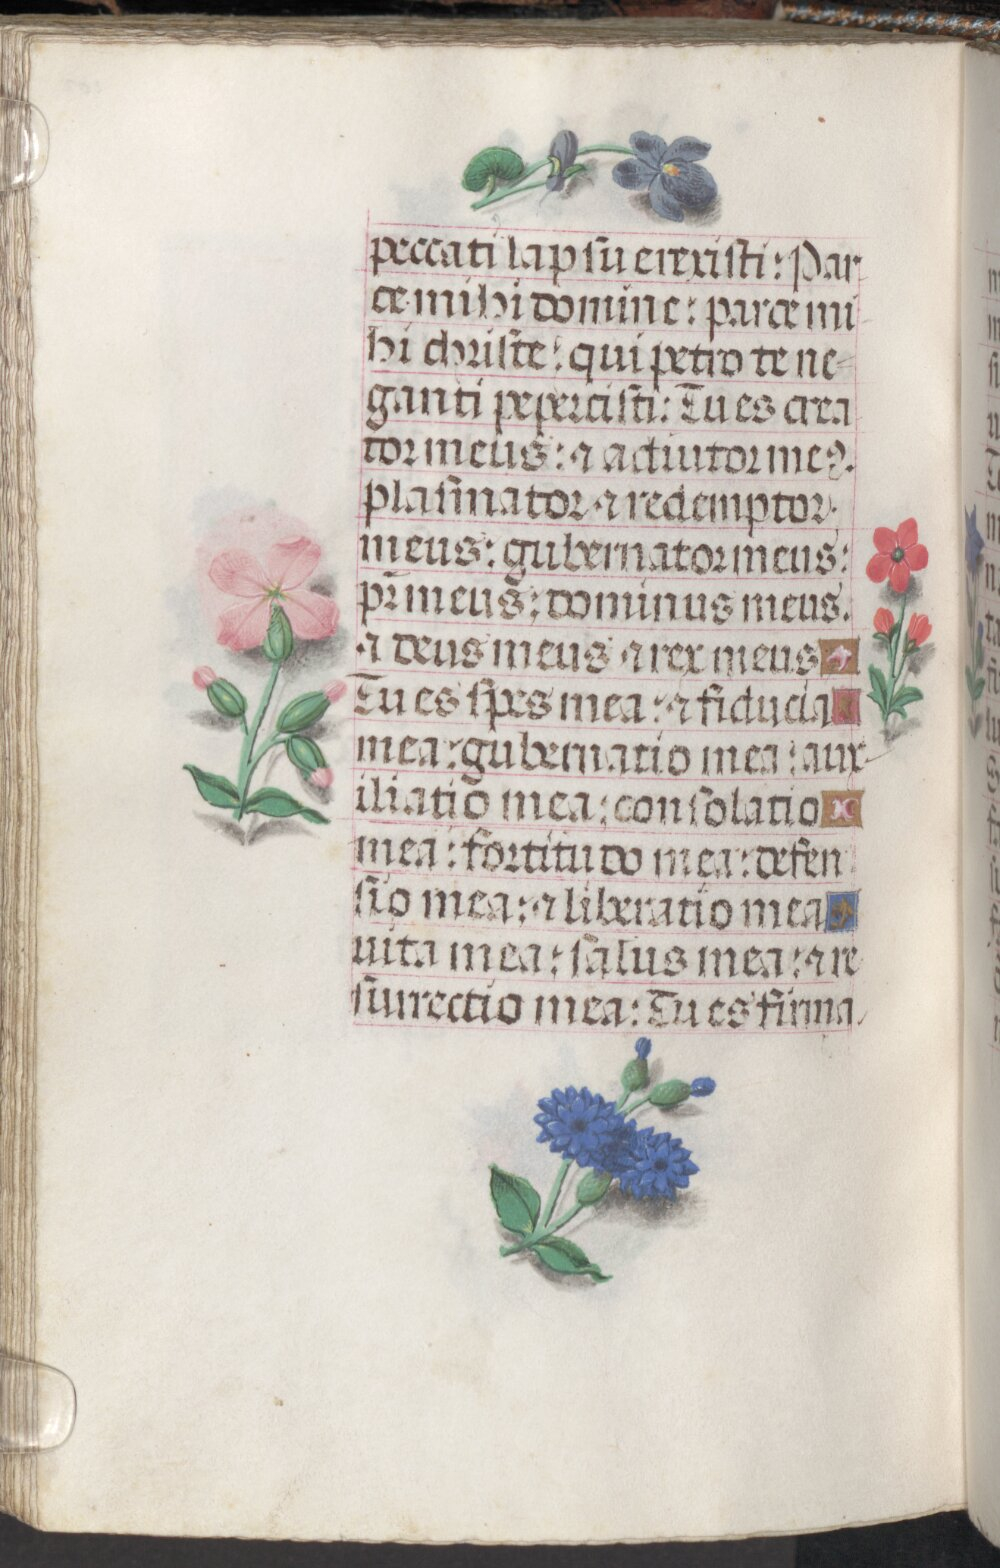 peccati lapsu erexisti: Par
ce mihi domine: parce mi
hi christe: qui petro te ne
ganti pepercisti: Tu es crea
tor meus: ⁊ adiutor me⁹.
plasmator ⁊ redemptor
meus: gubernator meus:
pr̄ meus: dominus meus.
⁊ deus meus ⁊ rex meus
Tu es spes mea: ⁊ fiducia
mea: gubernatio mea: aux
iliatio mea: consolatio
mea: fortitudo mea: defen
sio mea: ⁊ liberatio mea
uita mea: salus mea: ⁊ re
surrectio mea: Tu es firma